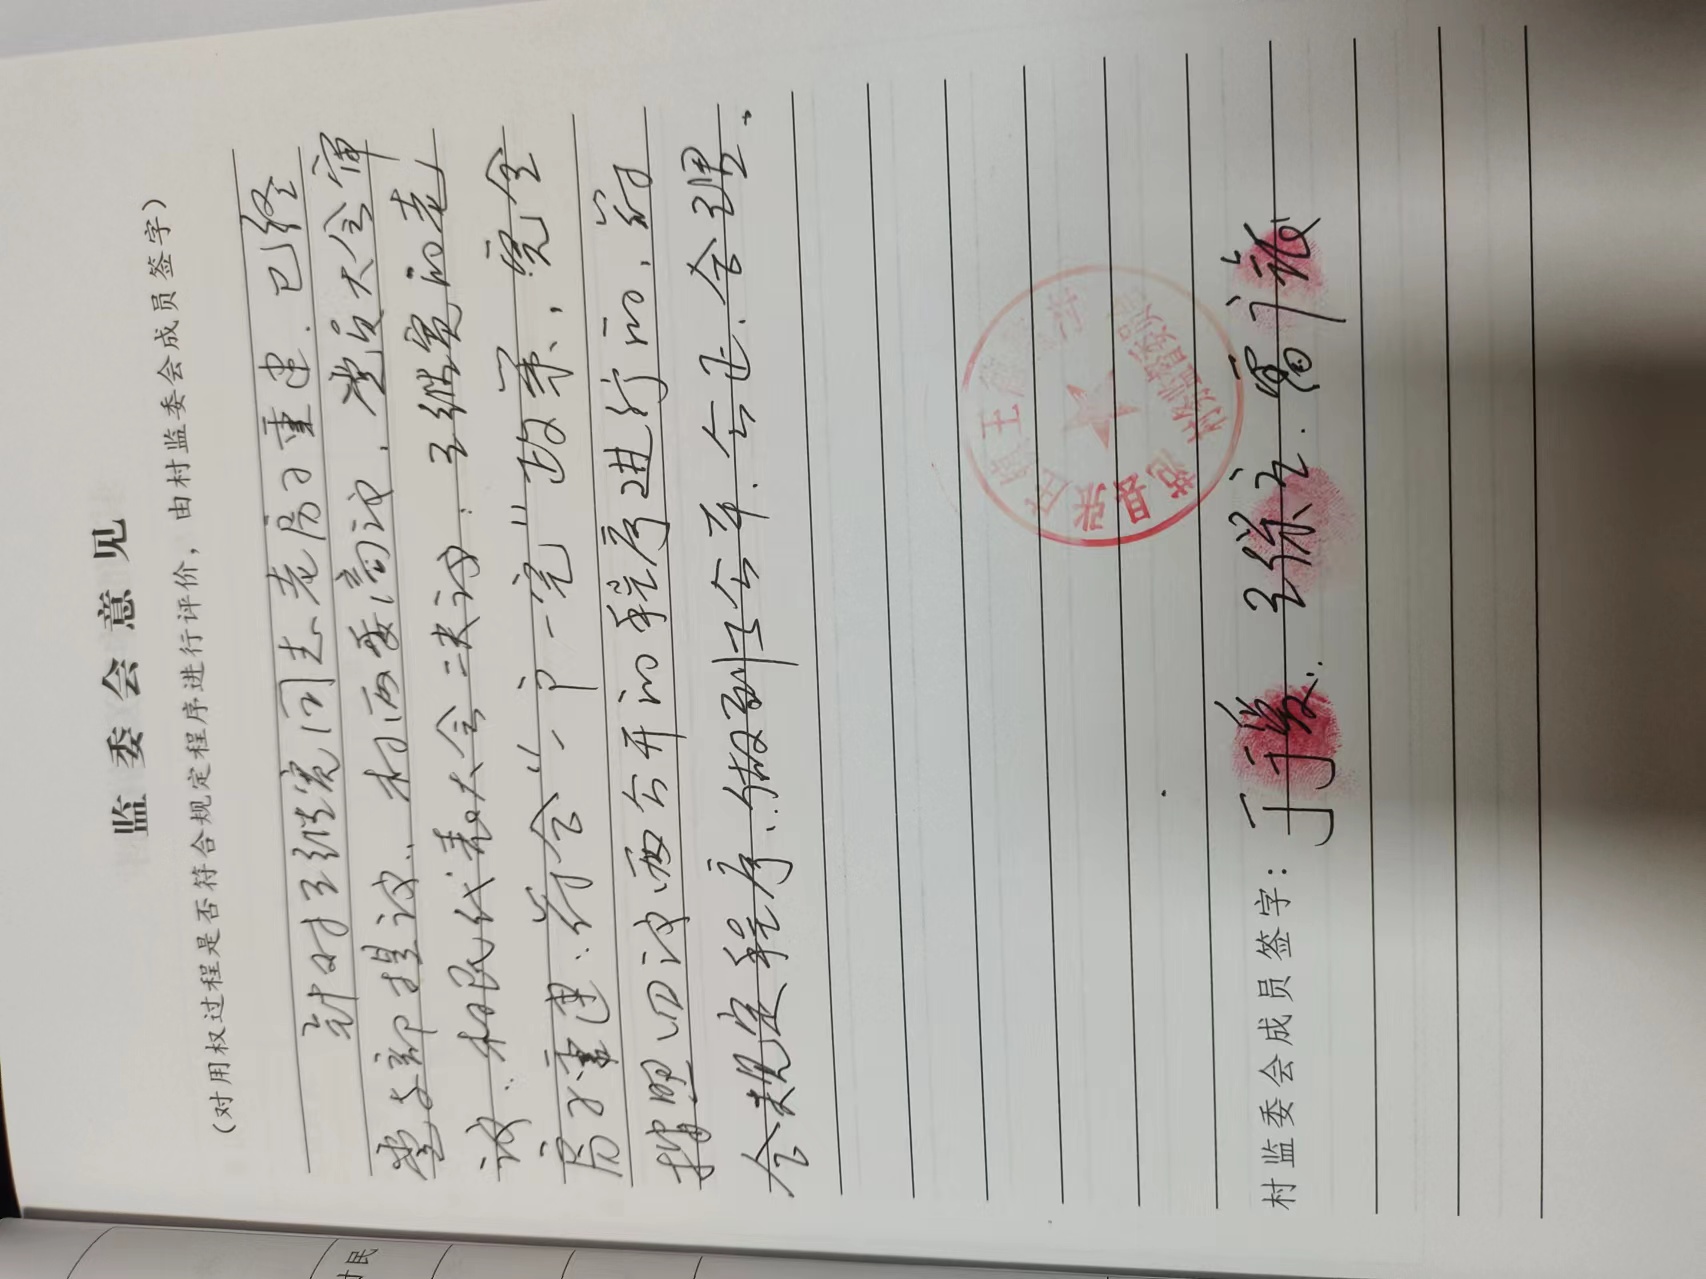 监委会意见
（对用权过程是否符合规定程序进行评价，由村监委会成员签字）
针对王继宽同志老房子重建、已经
党支部提议、村两委商议、党员大会审
议、村民代表大会决议、王继宽的老
房子重建、符合“一户一宅”政策、完全
按照四议两公开的程序进行的、符
合规定程序、做到了公平、公正、合理.
范县张庄镇王
村务监督委员
村监委会成员签字：
村民